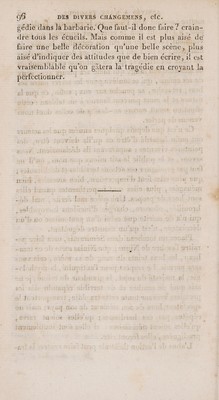 96 DES DIVERS CHANGEMENS, etc.
gédie dans la barbarie. Que faut-il donc faire ? crain-
dre tous les écueils. Mais comme il est plus aisé de
faire une belle décoration qu'une belle scène, plus
aisé d'indiquer des attitudes que de bien écrire, il est
vraisemblable qu'on gâtera la tragédie en croyant la
perfectionner.